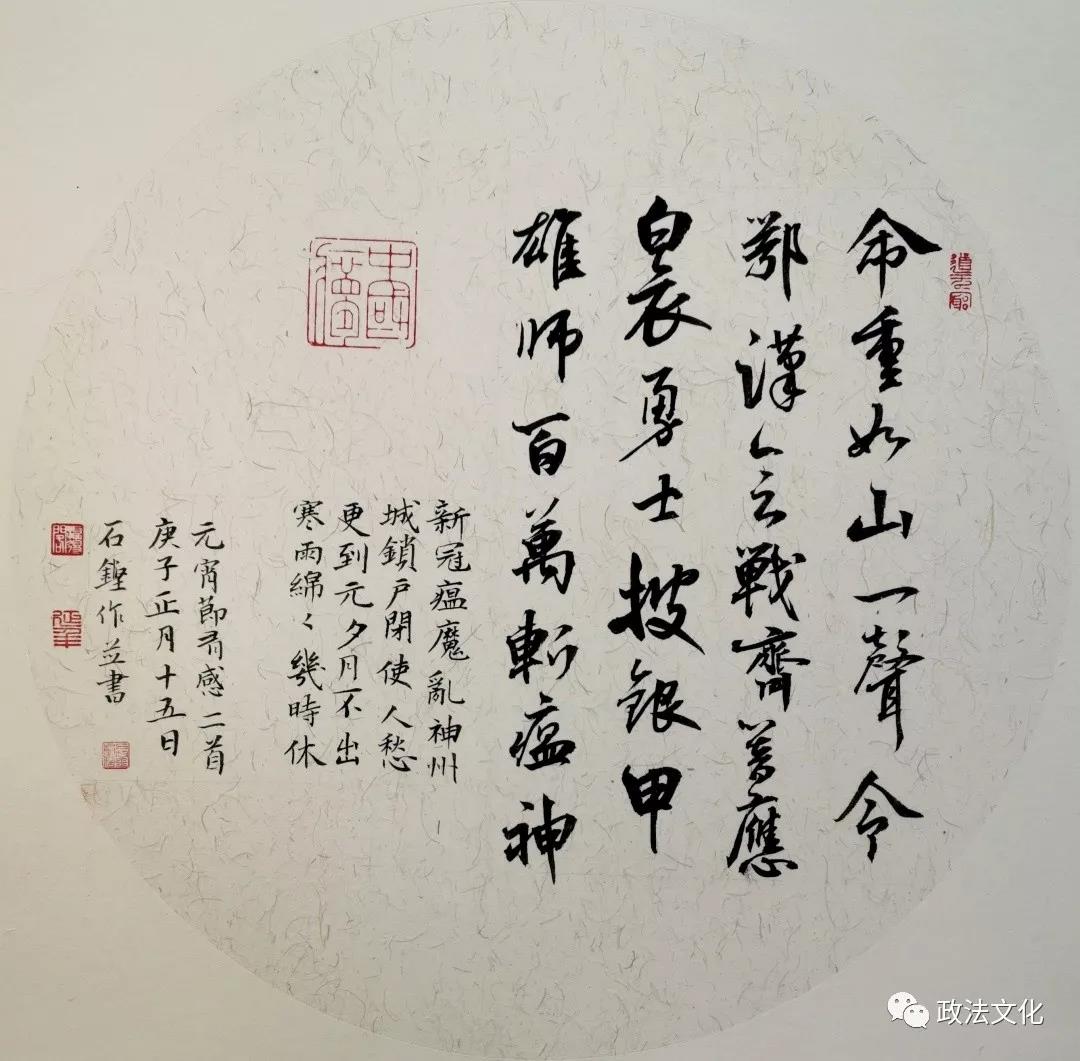 命重如山一聲令
鄂漢会戰齊荅應
白衣勇士披銀甲
雄師百萬斬瘟神
新冠瘟魔亂神州
城鎖戶閉使人愁
更到元夕月不出
寒雨綿々幾時休
元宵節有感二首
庚子正月十五日
石鏗作並書
中國
政法文化